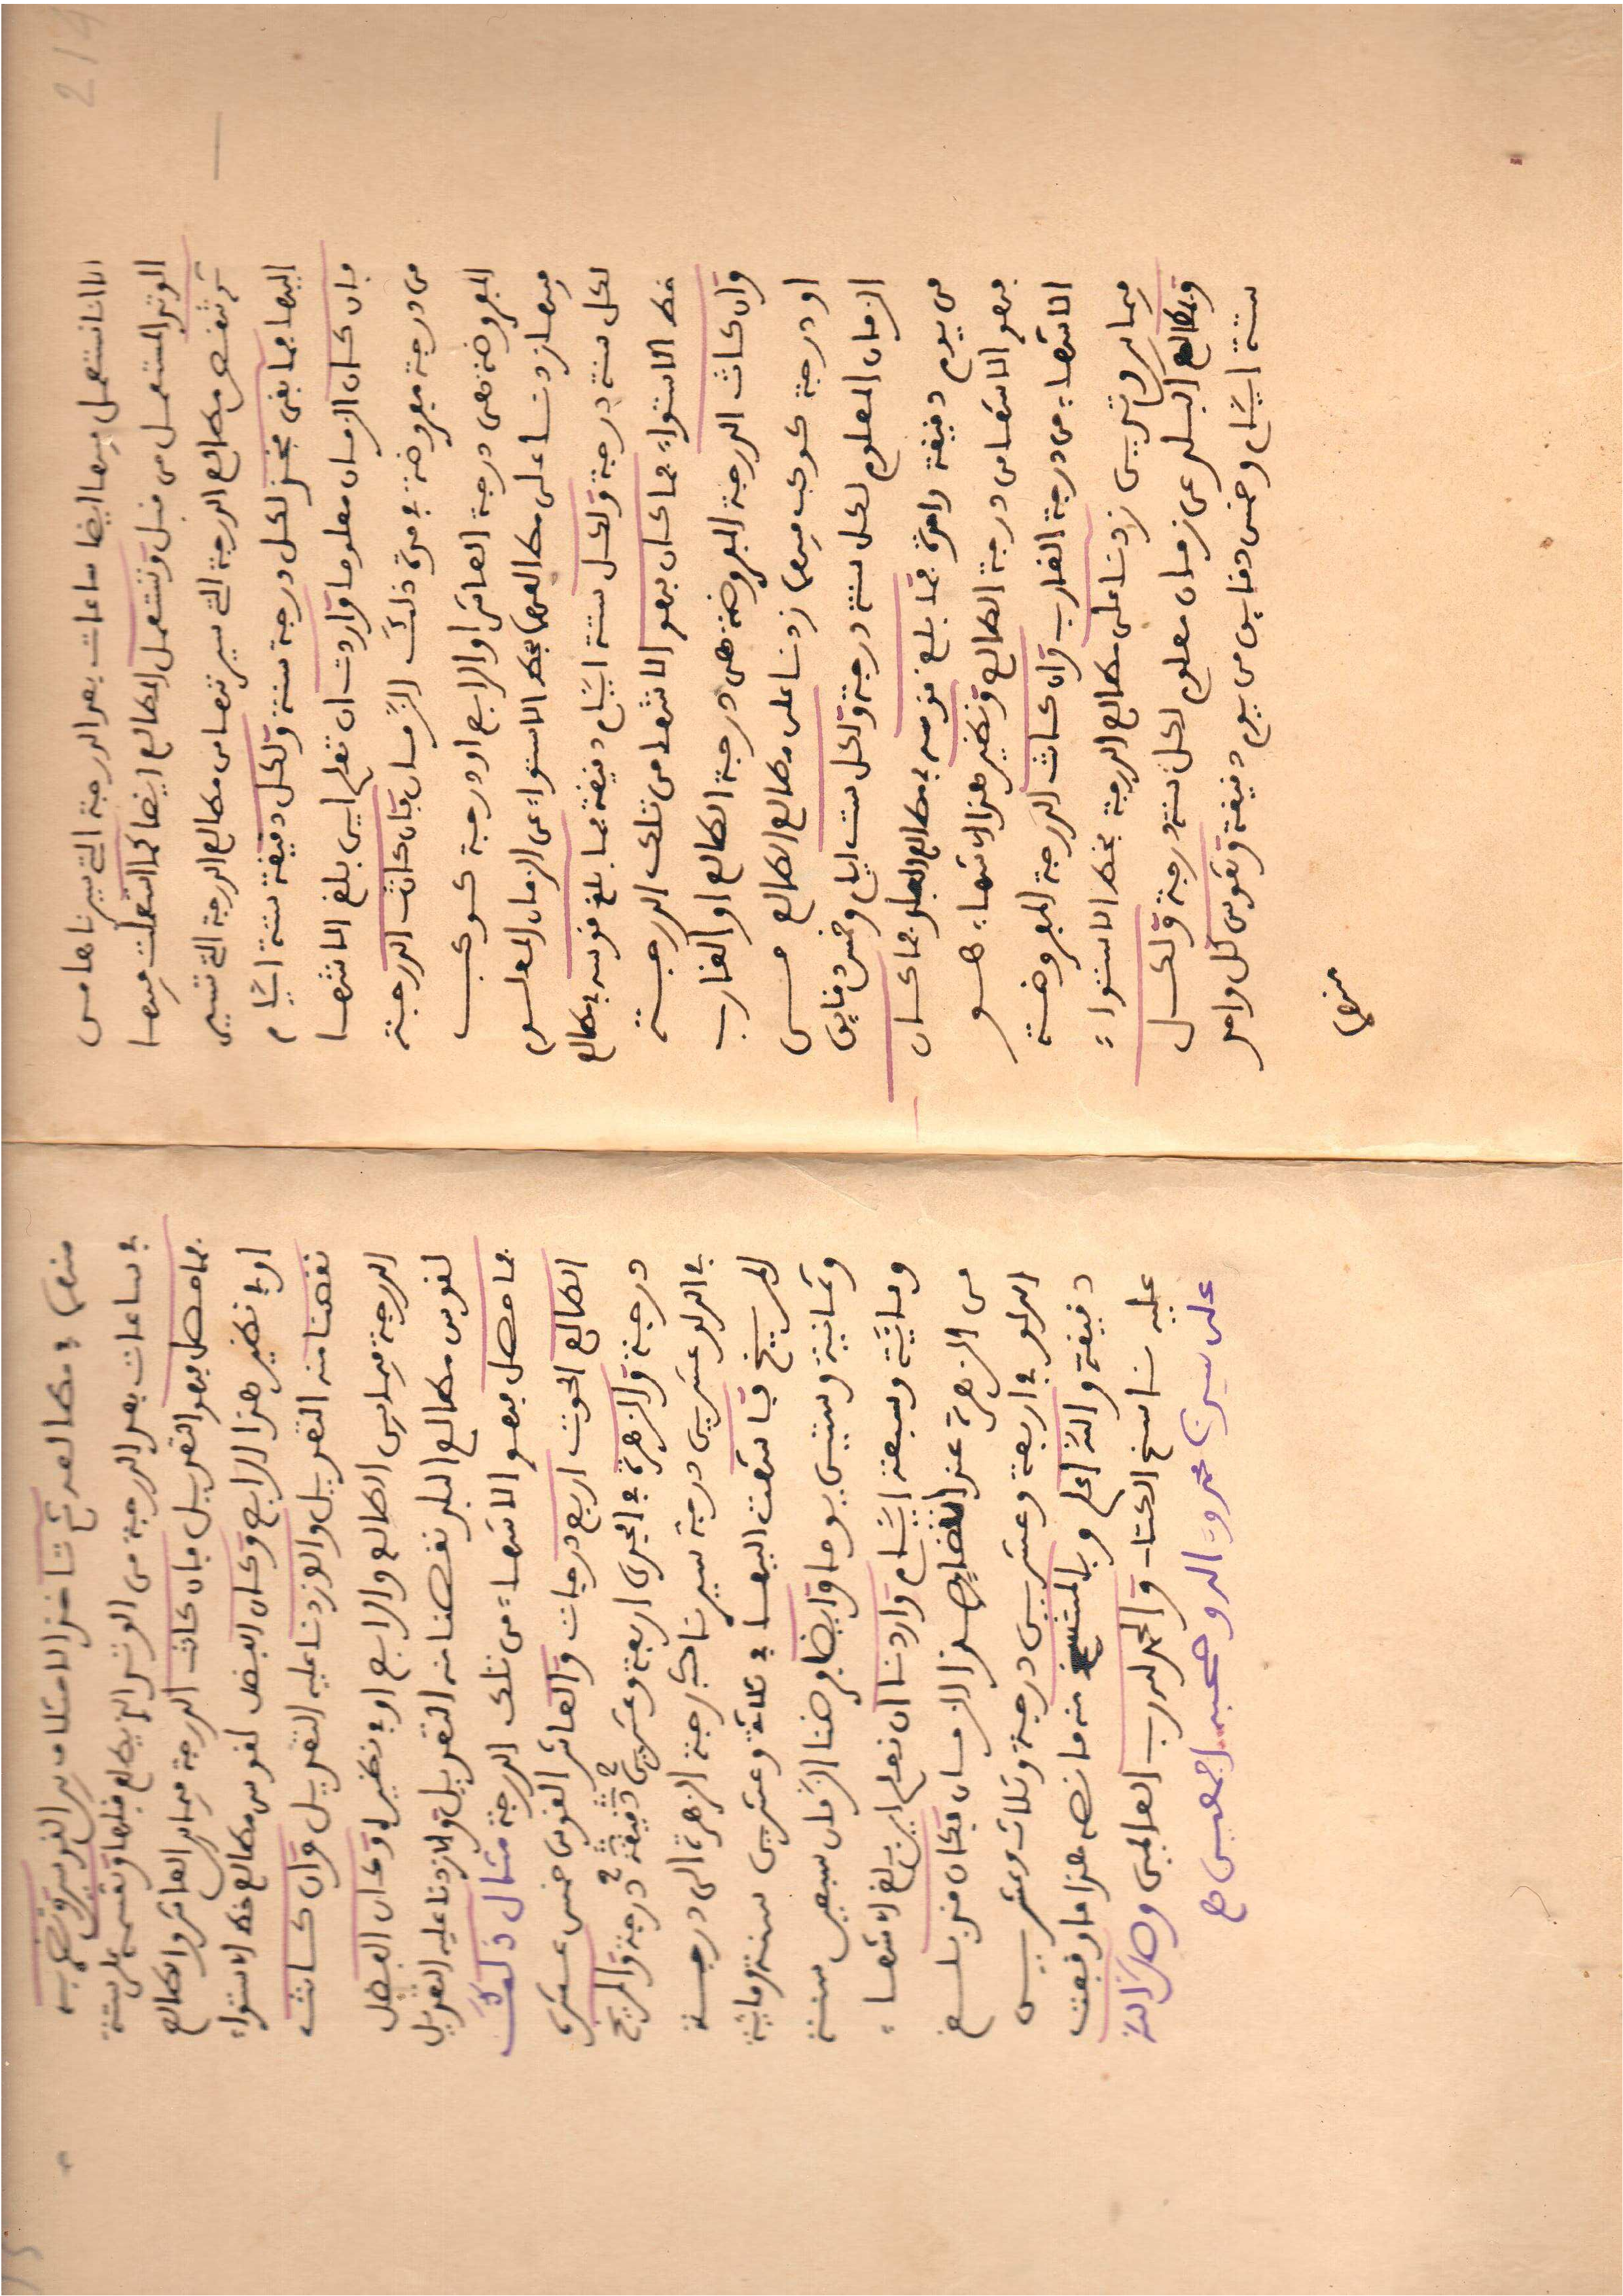 214
الا انا نستعمل فيها ايضا ساعات بعد الدرجة التي سيرناها من
الوتد المستعمل من قبل ونستعمل المطالع ايضا كما استعملت فيها
ثم تنقص مطالع الدرجة التي سير تها من مطالع الدرجة التي تسير
اليها فما بقى فخذ لكل درجة سنة ولكل دقيقة ستة ايام
فان كان الزمان معلوما واردت ان تعلم اين بلغ الانتها
من درجة مفروضة في مدة ذلك الزمان فان كانت الدرجة
المفروضة هى درجة العاشر او الرابع او درجة كوكب
فيها زدنا على مطالعها بخط الاستواء عن الزمان المعلوم
لكل سنة درجة ولكل ستة ايام دقيقة فما بلغ قوسه في مطالع
خط الاستواء فما كان فهو الانتها من تلك الدرجة
وان كانت الدرجة المفروضة هى درجة الطالع او الغارب
او درجة كوكب فيهما زدنا على مطالع الطالع من
الزمان المعلوم لكل سنة درجة ولكل ست ايام وخمس دقايق
من يوم دقيقة واحدة فما بلغ قوسه في مطالع البلد فما كان
فهو الانتها من درجة الطالع ونظير هذا الانتهاء هو
الانتهاء من درجة الغارب وان كانت الدرجة المفروضة
فيما بين وتدين زدنا على مطالع الدرجة بخط الاستواء
وبمطالع البلد عن زمان معلوم لكل سنة درجة ولكل
ستة ايام وخمس دقايق من يوم دقيقة وتقوس كل واحد
منهما
منهما في مطالعه ثم تاخذ الاختلاف بين القوسين وتضربه
في ساعات بعد الدرجة من الوتد الذي يطالع قبلها وتقسمه على ستة
فما حصل فهو التعديل فان كانت الدرجة فيما بين العاشر والطالع
او في نظير هذا الرابع وكان الفضل لقوس مطالع خط الاستواء
نقصنا منه التعديل والا زدنا عليه التعديل وان كانت
الدرجة فيما بين الطالع والرابع او في نظيره وكان الفضل
لقوس مطالع البلد نقصنا منه التعديل والا زدنا عليه التعديل
فما حصل فهو الانتهاء من تلك الدرجة مثال ذلك
الطالع الحوت اربع درجات والعاشر القوس خمس عشرة
درجة والزهرة في الجدى اربعة وعشرين دقيقة درجة والمريخ
في الدلو عشرين درجة سيرنا درجة الزهرة الى درجة
المريخ فانتهت اليها في ثلاثة وعشرين سنة ومائة
وثمانية وستين يوما وايضا فرضنا الزمان سبعين سنة
ومائة وسبعة ايام واردنا ان نعلم اين بلغ الانتهاء
من الزهرة عند انقضاء هذا الزمان فكان قد بلغ
الدلو في اربعة وعشرين درجة وثلاث وعشرين
دقيقة والله اعلم وبالمنتسخ منه ما نصه هذا ما وقعت
عليه ناسخ الكتاب والحمد لله رب العالمين وصلى الله
على سيدنا محمد وءاله وصحبه اجمعين صح